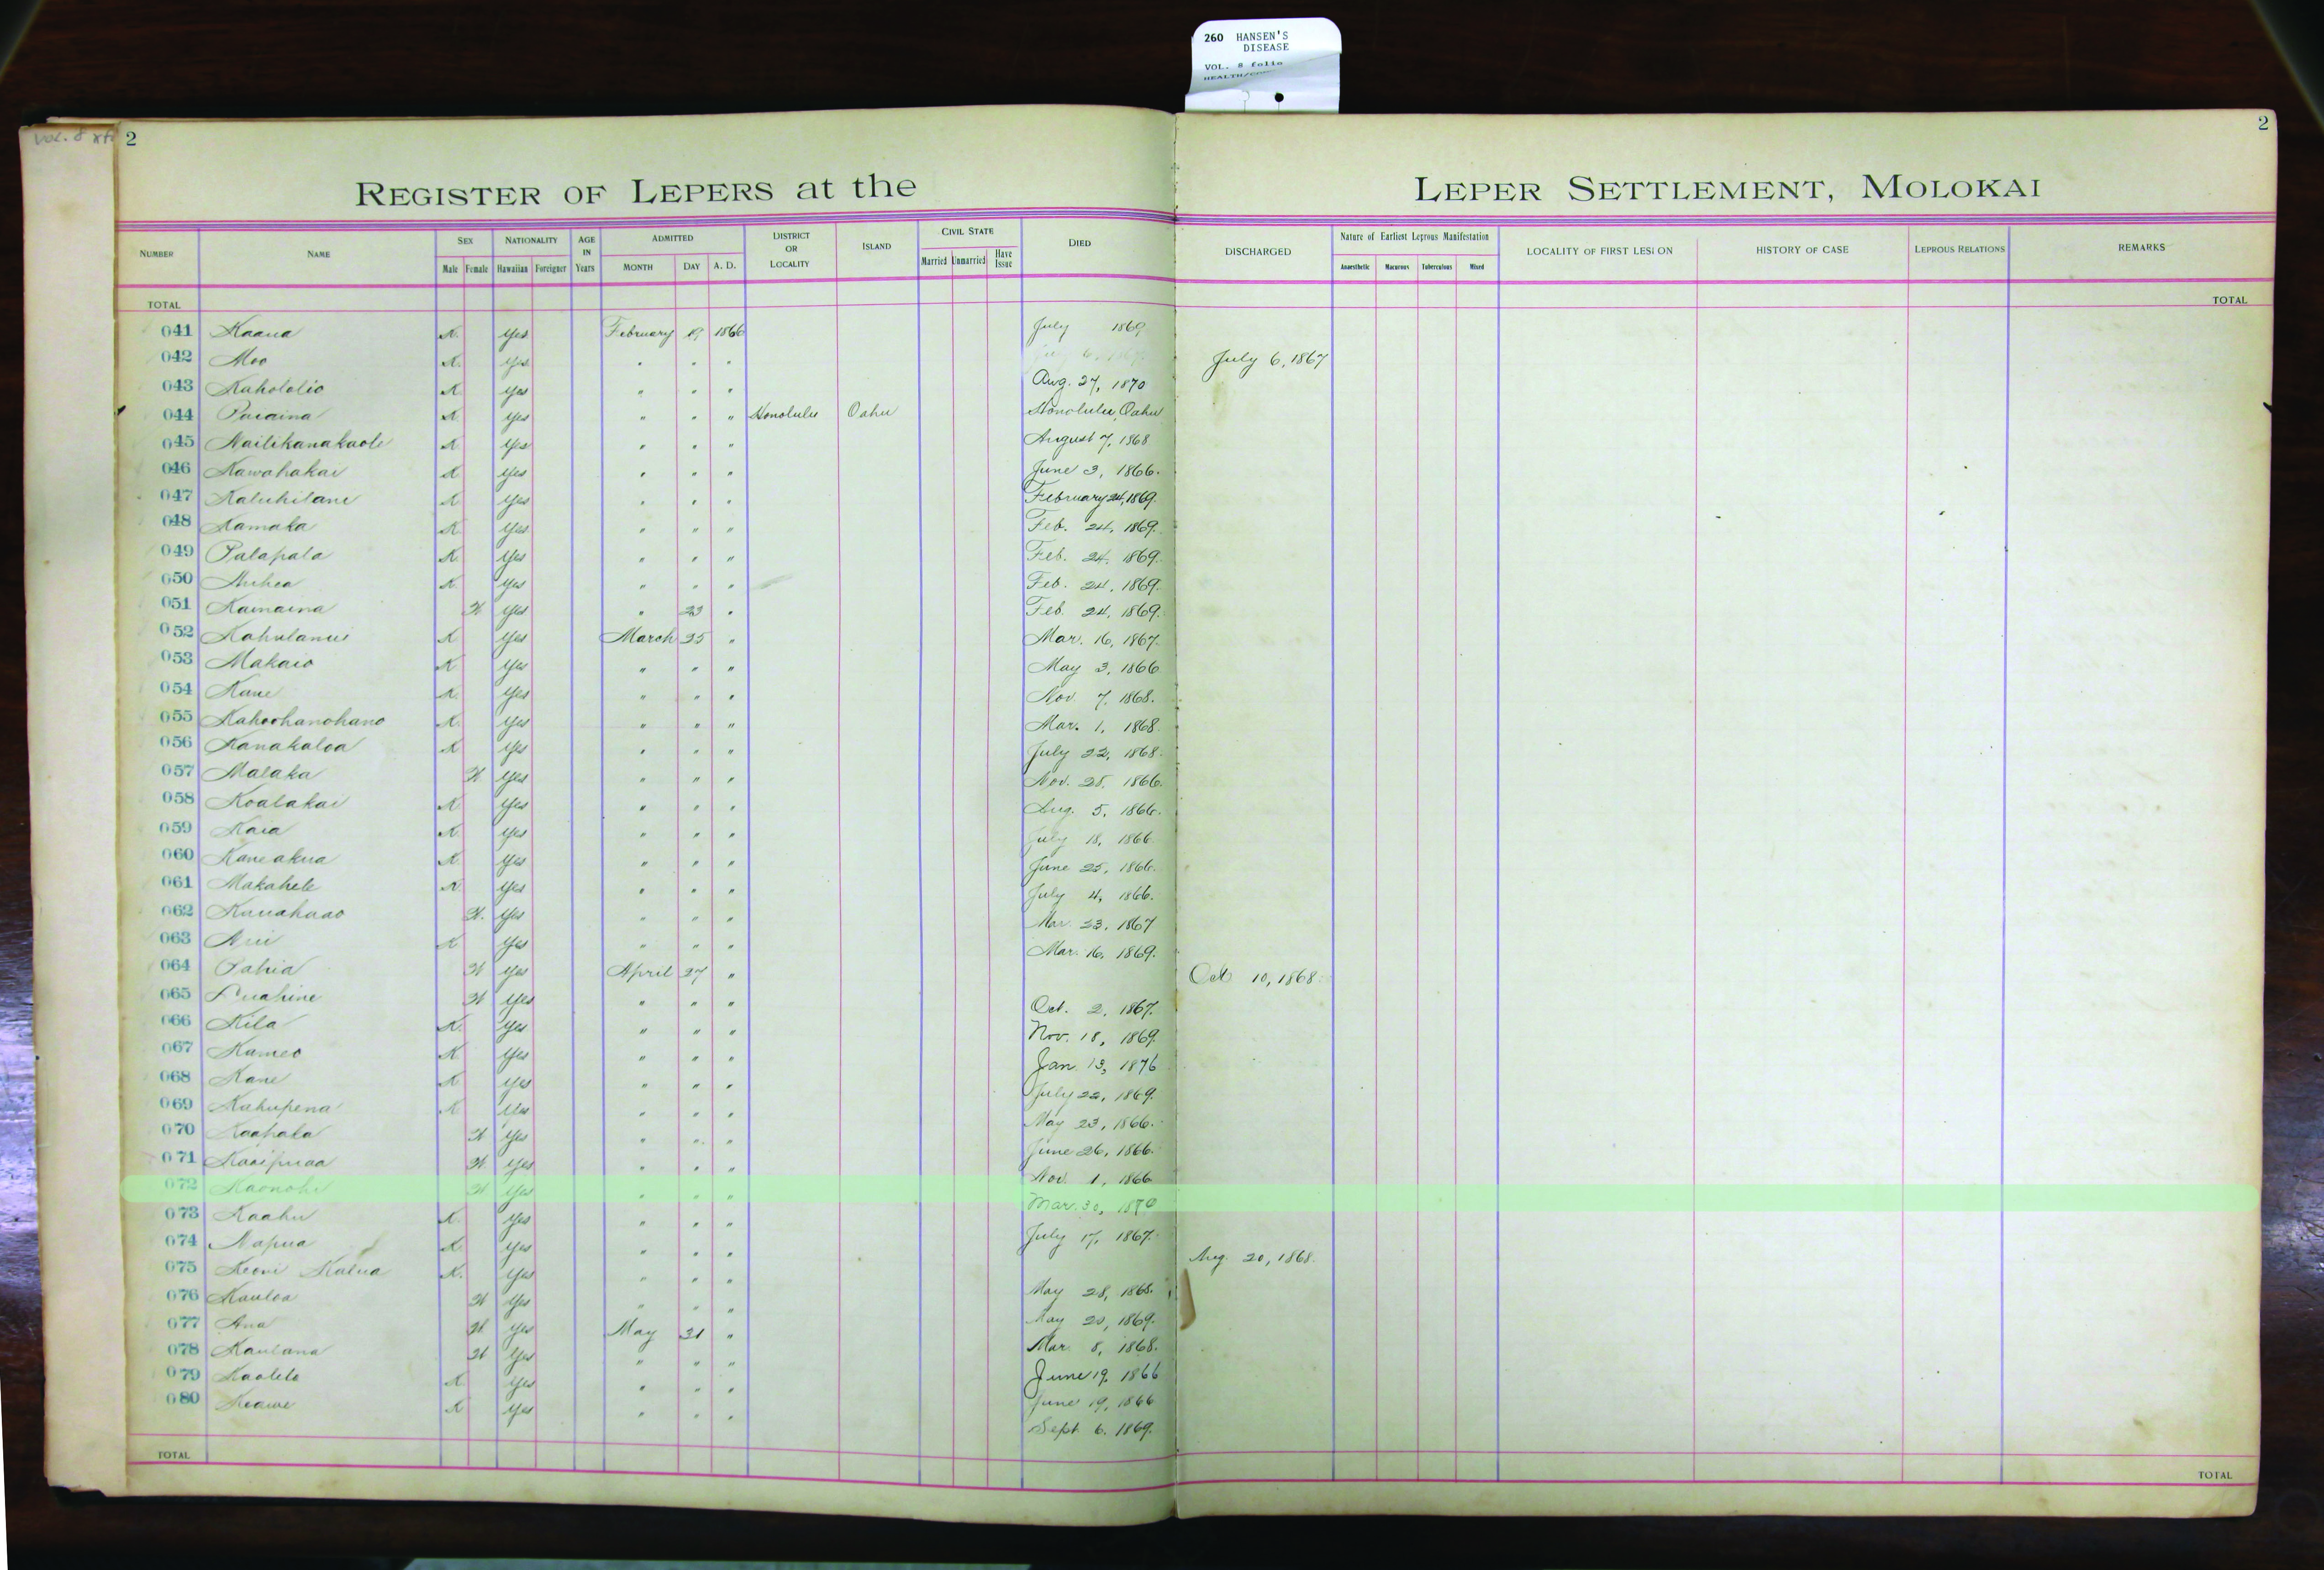 260 HANSEN'S
DISEASE
VOL. 8 folio
Vol. 8
2
2
REGISTER OF LEPERS at the LEPER SETTLEMENT, MOLOKAI
NUMBER NAME SEX NATIONALITY AGE IN Years ADMITTED DISTRICT OR LOCALITY ISLAND CIVIL STATE DIED DISCHARGED Nature of Earliest Leprous Manifestation LOCALITY OF FIRST LESION HISTORY OF CASE LEPROUS RELATIONS REMARKS
Male Female Hawaiian Foreigner MONTH DAY A. D. Married Unmarried Have Issue Anaesthetic Macurous Tuberculous Mixed
TOTAL TOTAL
041 Kaaua K. Yes February 19 1866 July 1869
042 Moo K. Yes " " " July 6, 1867
043 Kahololio K Yes " " " Aug. 27, 1870
044 Puaaina K Yes " " " Honolulu Oahu Honolulu, Oahu
045 Nailikanakaole K Yes " " " August 7, 1868
046 Kawahakai K Yes " " " June 3, 1866.
047 Kaluhilani K Yes " " " February 24, 1869.
048 Kamaka K Yes " " " Feb. 24, 1869.
049 Palapala K. Yes " " " Feb. 24, 1869.
050 K. Yes " " " Feb. 24, 1869.
051 Kamaina W. Yes " 23 " Feb. 24, 1869.
052 Kahulanui K Yes March 25 " Mar. 16, 1867.
053 Makaio K Yes " " " May 3, 1866
054 Kane K. Yes " " " Nov. 7, 1868.
055 Kahoohanohano K. Yes " " " Mar. 1, 1868.
056 Kanakaloa K Yes " " " July 22, 1868.
057 Malaka W Yes " " " Nov. 28, 1866.
058 Koalakai K Yes " " " Aug. 5, 1866.
059 Kaia K Yes " " " July 18, 1866.
060 Kaneakua K Yes " " " June 25, 1866.
061 Makahele K Yes " " " July 4, 1866.
062 Kauahaao W. Yes " " " Mar. 23, 1867
063 K Yes " " " Mar. 16, 1869.
064 Pahia W Yes April 27 " Oct 10, 1868.
065 Puahine W Yes " " " Oct. 2, 1867.
066 Kila K. Yes " " " Nov. 18, 1869.
067 Kameo K Yes " " " Jan. 13, 1876
068 Kane K Yes " " " July 22, 1869.
069 Kahupena K Yes " " " May 23, 1866.
070 Kaahala W Yes " " " June 26, 1866.
071 Kaaipuaa W. Yes " " " Nov. 1, 1866.
072 Kaonohi W Yes " " " Mar. 30, 1870
073 Kaahu K. Yes " " " July 17, 1867.
074 Napua K Yes " " " Aug. 20, 1868.
075 Keoni Kalua K. Yes " " " May 28, 1868.
076 Kauloa W Yes " " " May 20, 1869.
077 Ana W. Yes May 31 " Mar. 8, 1868.
078 Kaulana W Yes " " " June 19, 1866
079 Kaolelo K Yes " " " June 19, 1866
080 Keawe K Yes " " " Sept. 6, 1869.
TOTAL TOTAL